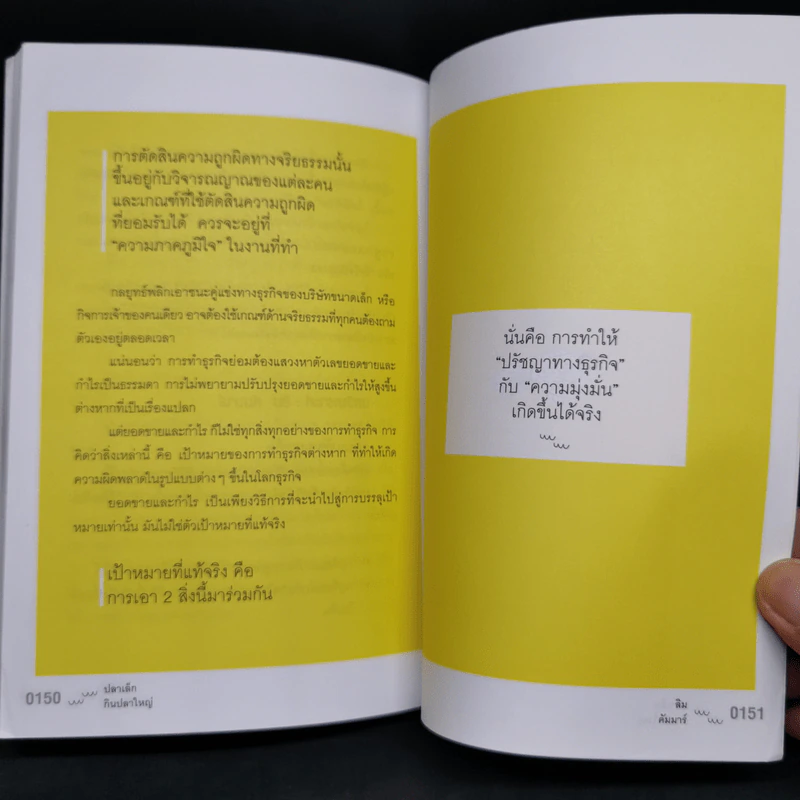 การตัดสินความถูกผิดทางจริยธรรมนั้น
ขึ้นอยู่กับวิจารณญาณของแต่ละคน
และเกณฑ์ที่ใช้ตัดสินความถูกผิด
ที่ยอมรับได้ ควรจะอยู่ที่
“ความภาคภูมิใจ” ในงานที่ทำ
กลยุทธ์พลิกเอาชนะคู่แข่งทางธุรกิจของบริษัทขนาดเล็ก หรือ
กิจการเจ้าของคนเดียว อาจต้องใช้เกณฑ์ด้านจริยธรรมที่ทุกคนต้องถาม
ตัวเองอยู่ตลอดเวลา
แน่นอนว่า การทำธุรกิจย่อมต้องแสวงหาตัวเลขยอดขายและ
กำไรเป็นธรรมดา การไม่พยายามปรับปรุงยอดขายและกำไรให้สูงขึ้น
ต่างหากที่เป็นเรื่องแปลก
แต่ยอดขายและกำไร ก็ไม่ใช่ทุกสิ่งทุกอย่างของการทำธุรกิจ การ
คิดว่าสิ่งเหล่านี้ คือ เป้าหมายของการทำธุรกิจต่างหาก ที่ทำให้เกิด
ความผิดพลาดในรูปแบบต่างๆ ขึ้นในโลกธุรกิจ
ยอดขายและกำไร เป็นเพียงวิธีการที่จะนำไปสู่การบรรลุเป้า
หมายเท่านั้น มันไม่ใช่ตัวเป้าหมายที่แท้จริง
เป้าหมายที่แท้จริง คือ
การเอา 2 สิ่งนี้มาร่วมกัน
0150
ปลาเล็ก
กินปลาใหญ่
นั่นคือ การทำให้
“ปรัชญาทางธุรกิจ”
กับ “ความมุ่งมั่น”
เกิดขึ้นได้จริง
ลิม
คัมมาร์
0151